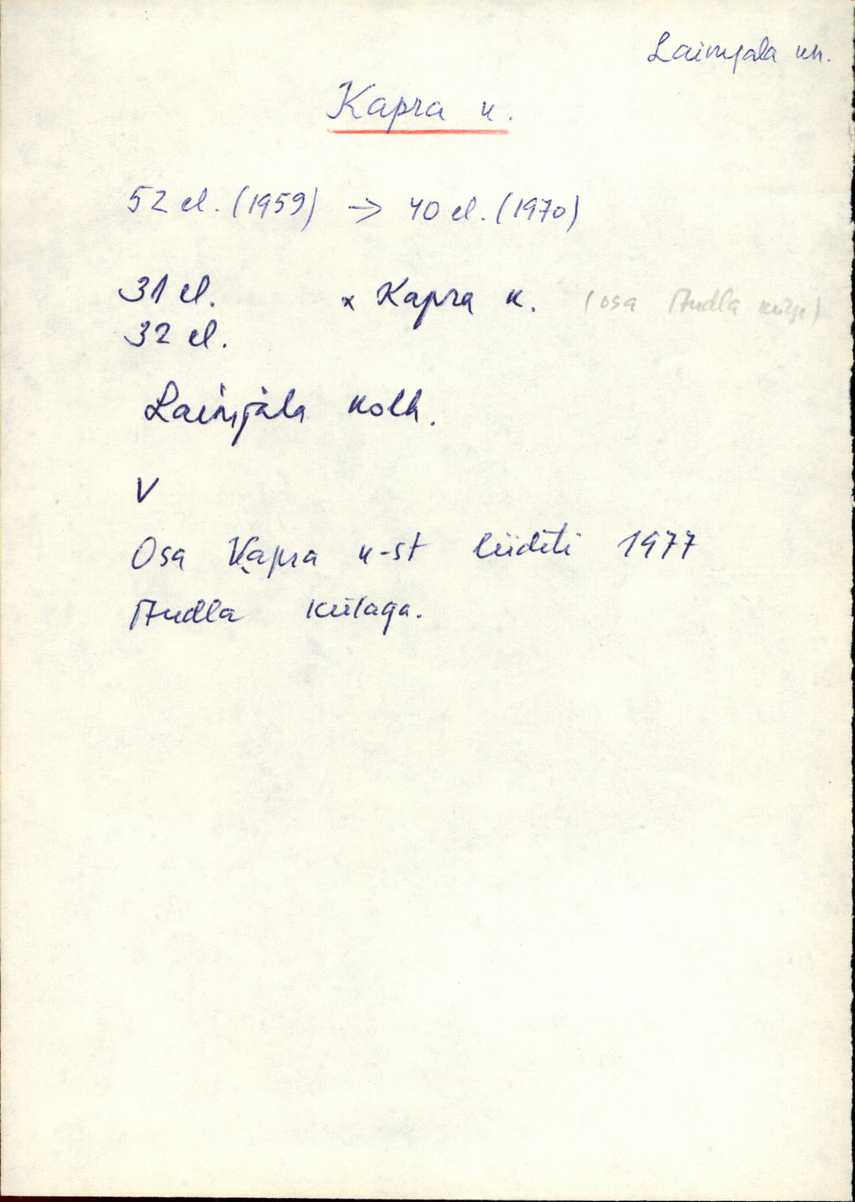 Laimjala kn.
Kapra k.
52 el. (1959) → 40 el. (1970)
31 el. x Kapra k. (osa Audla külje)
32 el.
Laimjala kolh.
V
Osa Kapra k-st liideti 1977
Audla külaga.